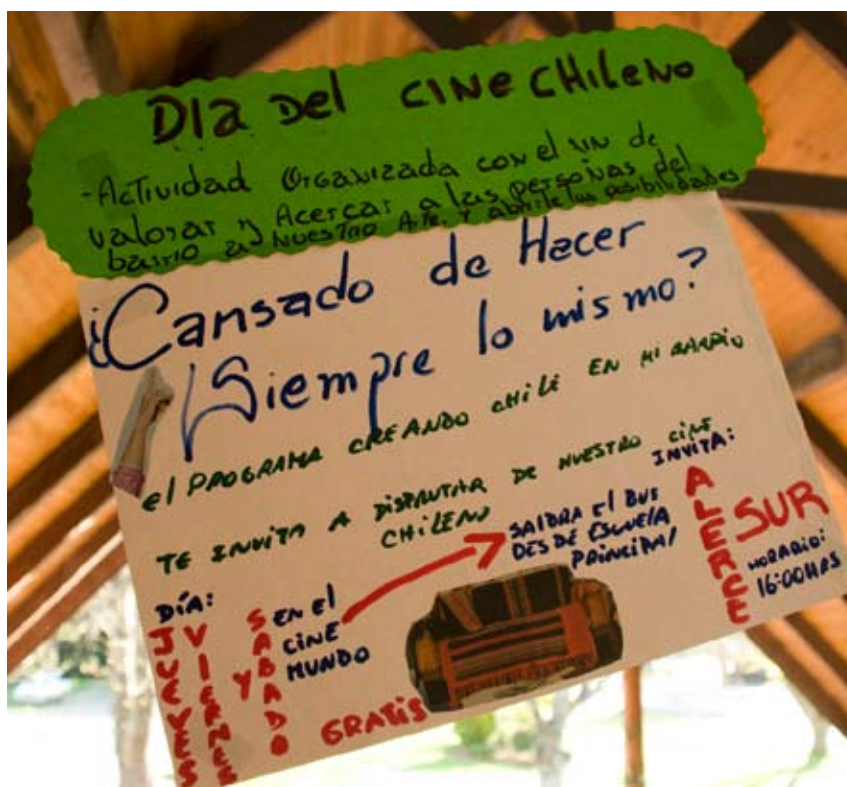 Dia Del CINE CHILENO
- Actividad Organizada con el fin de
valorar y Acercar a las personas del
barrio a NUESTRO Arte. y abrirle las posibilidades
¿Cansado de Hacer
Siempre lo mismo?
el PROGRAMA CREANDO CHILE EN MI BARRIO
TE INVITA A DISFRUTAR DE NUESTRO CINE
CHILENO
INVITA:
ALERCE
SUR
HORARIO:
16:00 HRS
SALDRA El BUS
DESDE ESCUELA
PRINCIPAL
DÍA:
JUEVES
VIERNES
Y
SABADO
EN El
CINE
MUNDO
GRATIS